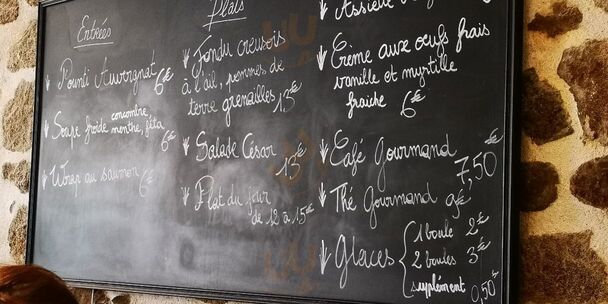 Entrées
Pounti Auvergnat 6€
Soupe froide concombre, menthe, féta 6€
Wrap au saumon 6€
Plats
Fondu creusois
à l'ail, pommes de
terre grenailles 13€
Salade César 13€
Plat du jour
de 12 à 15€
Assiette
Crème aux oeufs frais
vanille et myrtille
fraiche 6€
Café Gourmand 7,50€
Thé Gourmand 9€
Glaces
1 boule 2€
2 boules 3€
supplément 0,50€